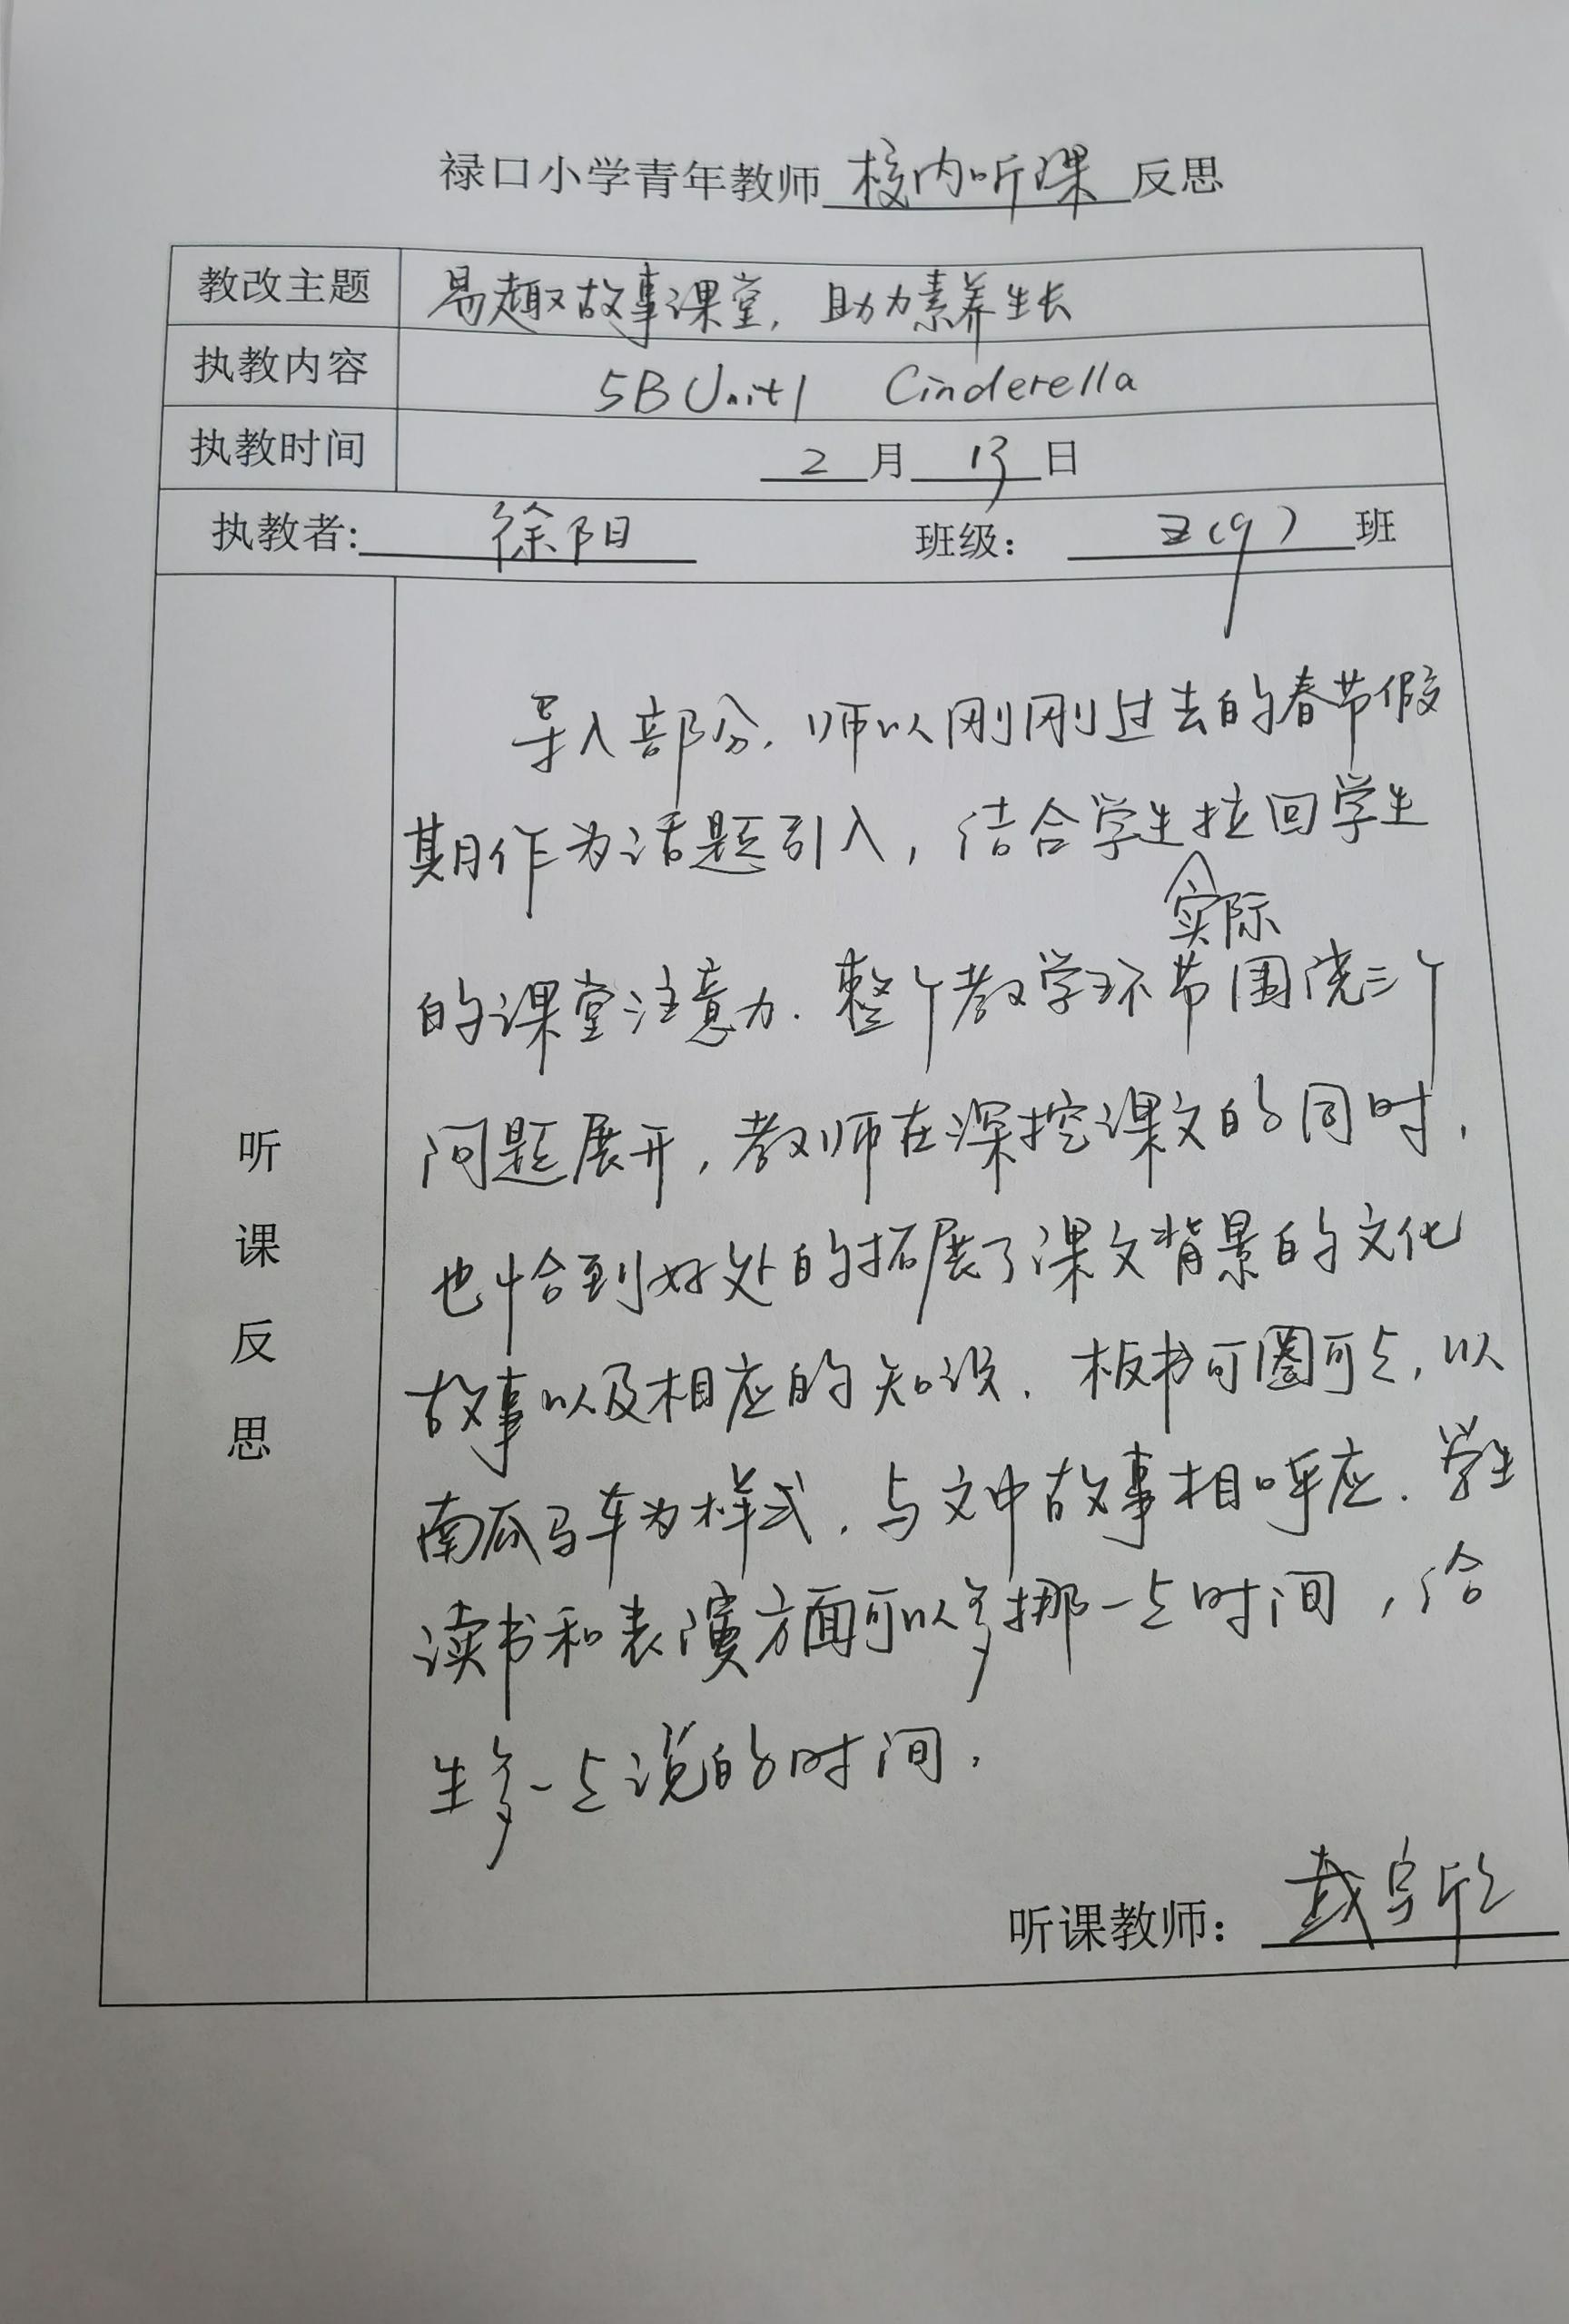 禄口小学青年教师校内听课反思
教改主题 易趣故事课堂，助力素养生长
执教内容 5B Unit1 Cinderella
执教时间 2月13日
执教者：徐阳 班级：五（9）班
听课反思
导入部分，师以刚刚过去的春节假
期作为话题引入，结合学生实际拉回学生
的课堂注意力．整个教学环节围绕三个
问题展开，教师在深挖课文的同时，
也恰到好处的拓展了课文背景的文化
故事以及相应的知识．板书可圈可点，以
南瓜马车为样式，与文中故事相呼应．学生
读书和表演方面可以多挪一点时间，给
生多一点说的时间．
听课教师：戴宇欣